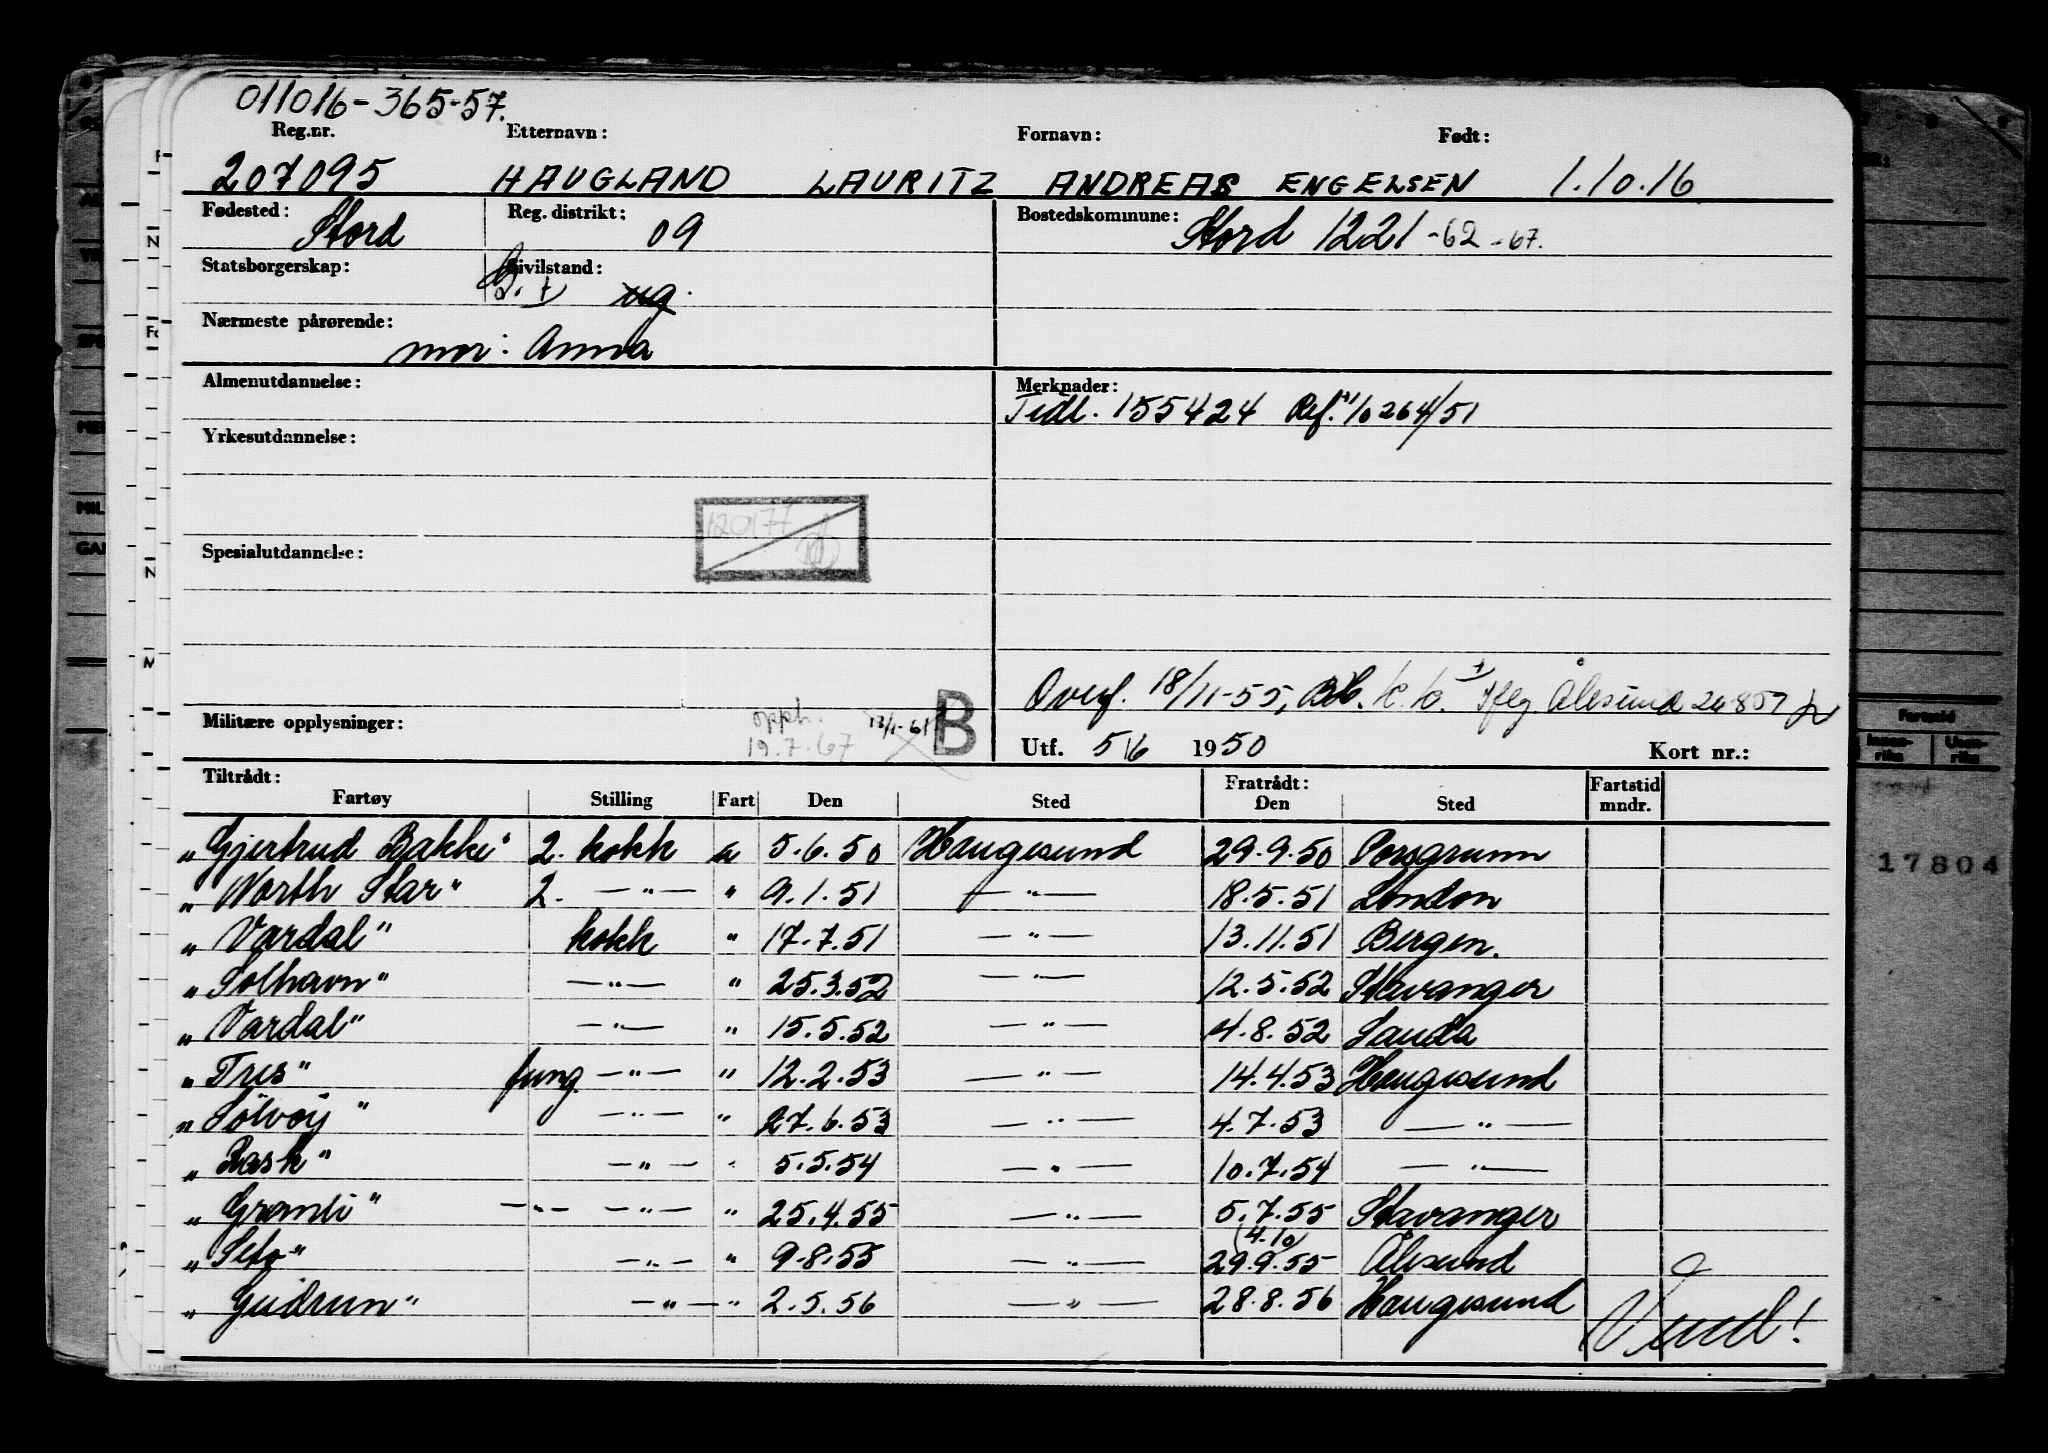 011016-365-57.
Reg.nr. Etternavn: Fornavn: Født:
207095 HAUGLAND LAURITZ ANDREAS ENGELSEN 1.10.16
Fødested: Stord Reg. distrikt: 09 Bostedskommune: Stord 1221 -62 -67.
Statsborgerskap: Civilstand: ug.
Nærmeste pårørende: mor: Anna
Almenutdannelse: Merknader:
Tidl. 155424 Ref. 10264/51
Yrkesutdannelse:
120177
Spesialutdannelse:
Overf. 18/11-55, Ålesund
Militære opplysninger: opph. 19.7.67 B
Utf. 5/6 1950 Kort nr.:
Tiltrådt: Fratrådt: Fartstid
Fartøy Stilling Fart Den Sted Den Sted mndr.
„Gjertrud Bakke" 2. kokk a 5.6.50 Haugesund 29.9.50 Porsgrunn
„North Star" 2. —"— " 9.1.51 —"— 18.5.51 London
„Vardal" kokk " 17.7.51 —"— 13.11.51 Bergen.
„Solhavn" —"— " 25.3.52 —"— 12.5.52 Stavanger
„Vardal" —"— " 15.5.52 —"— 4.8.52 Sauda
„Tres" fung. —"— " 12.2.53 —"— 14.4.53 Haugesund
„Sölvöy" —"— " 27.6.53 —"— 4.7.53 —"—
„Rask" —"— " 5.5.54 —"— 10.7.54 —"—
„Granli" —"— —"— " 25.4.55 —"— 5.7.55 Stavanger
(4.10)
„Seto" —"— " 9.8.55 —"— 29.9.55 Ålesund
„Gudrun" —"— " 2.5.56 —"— 28.8.56 Haugesund
Vend!
Fartstid
17804